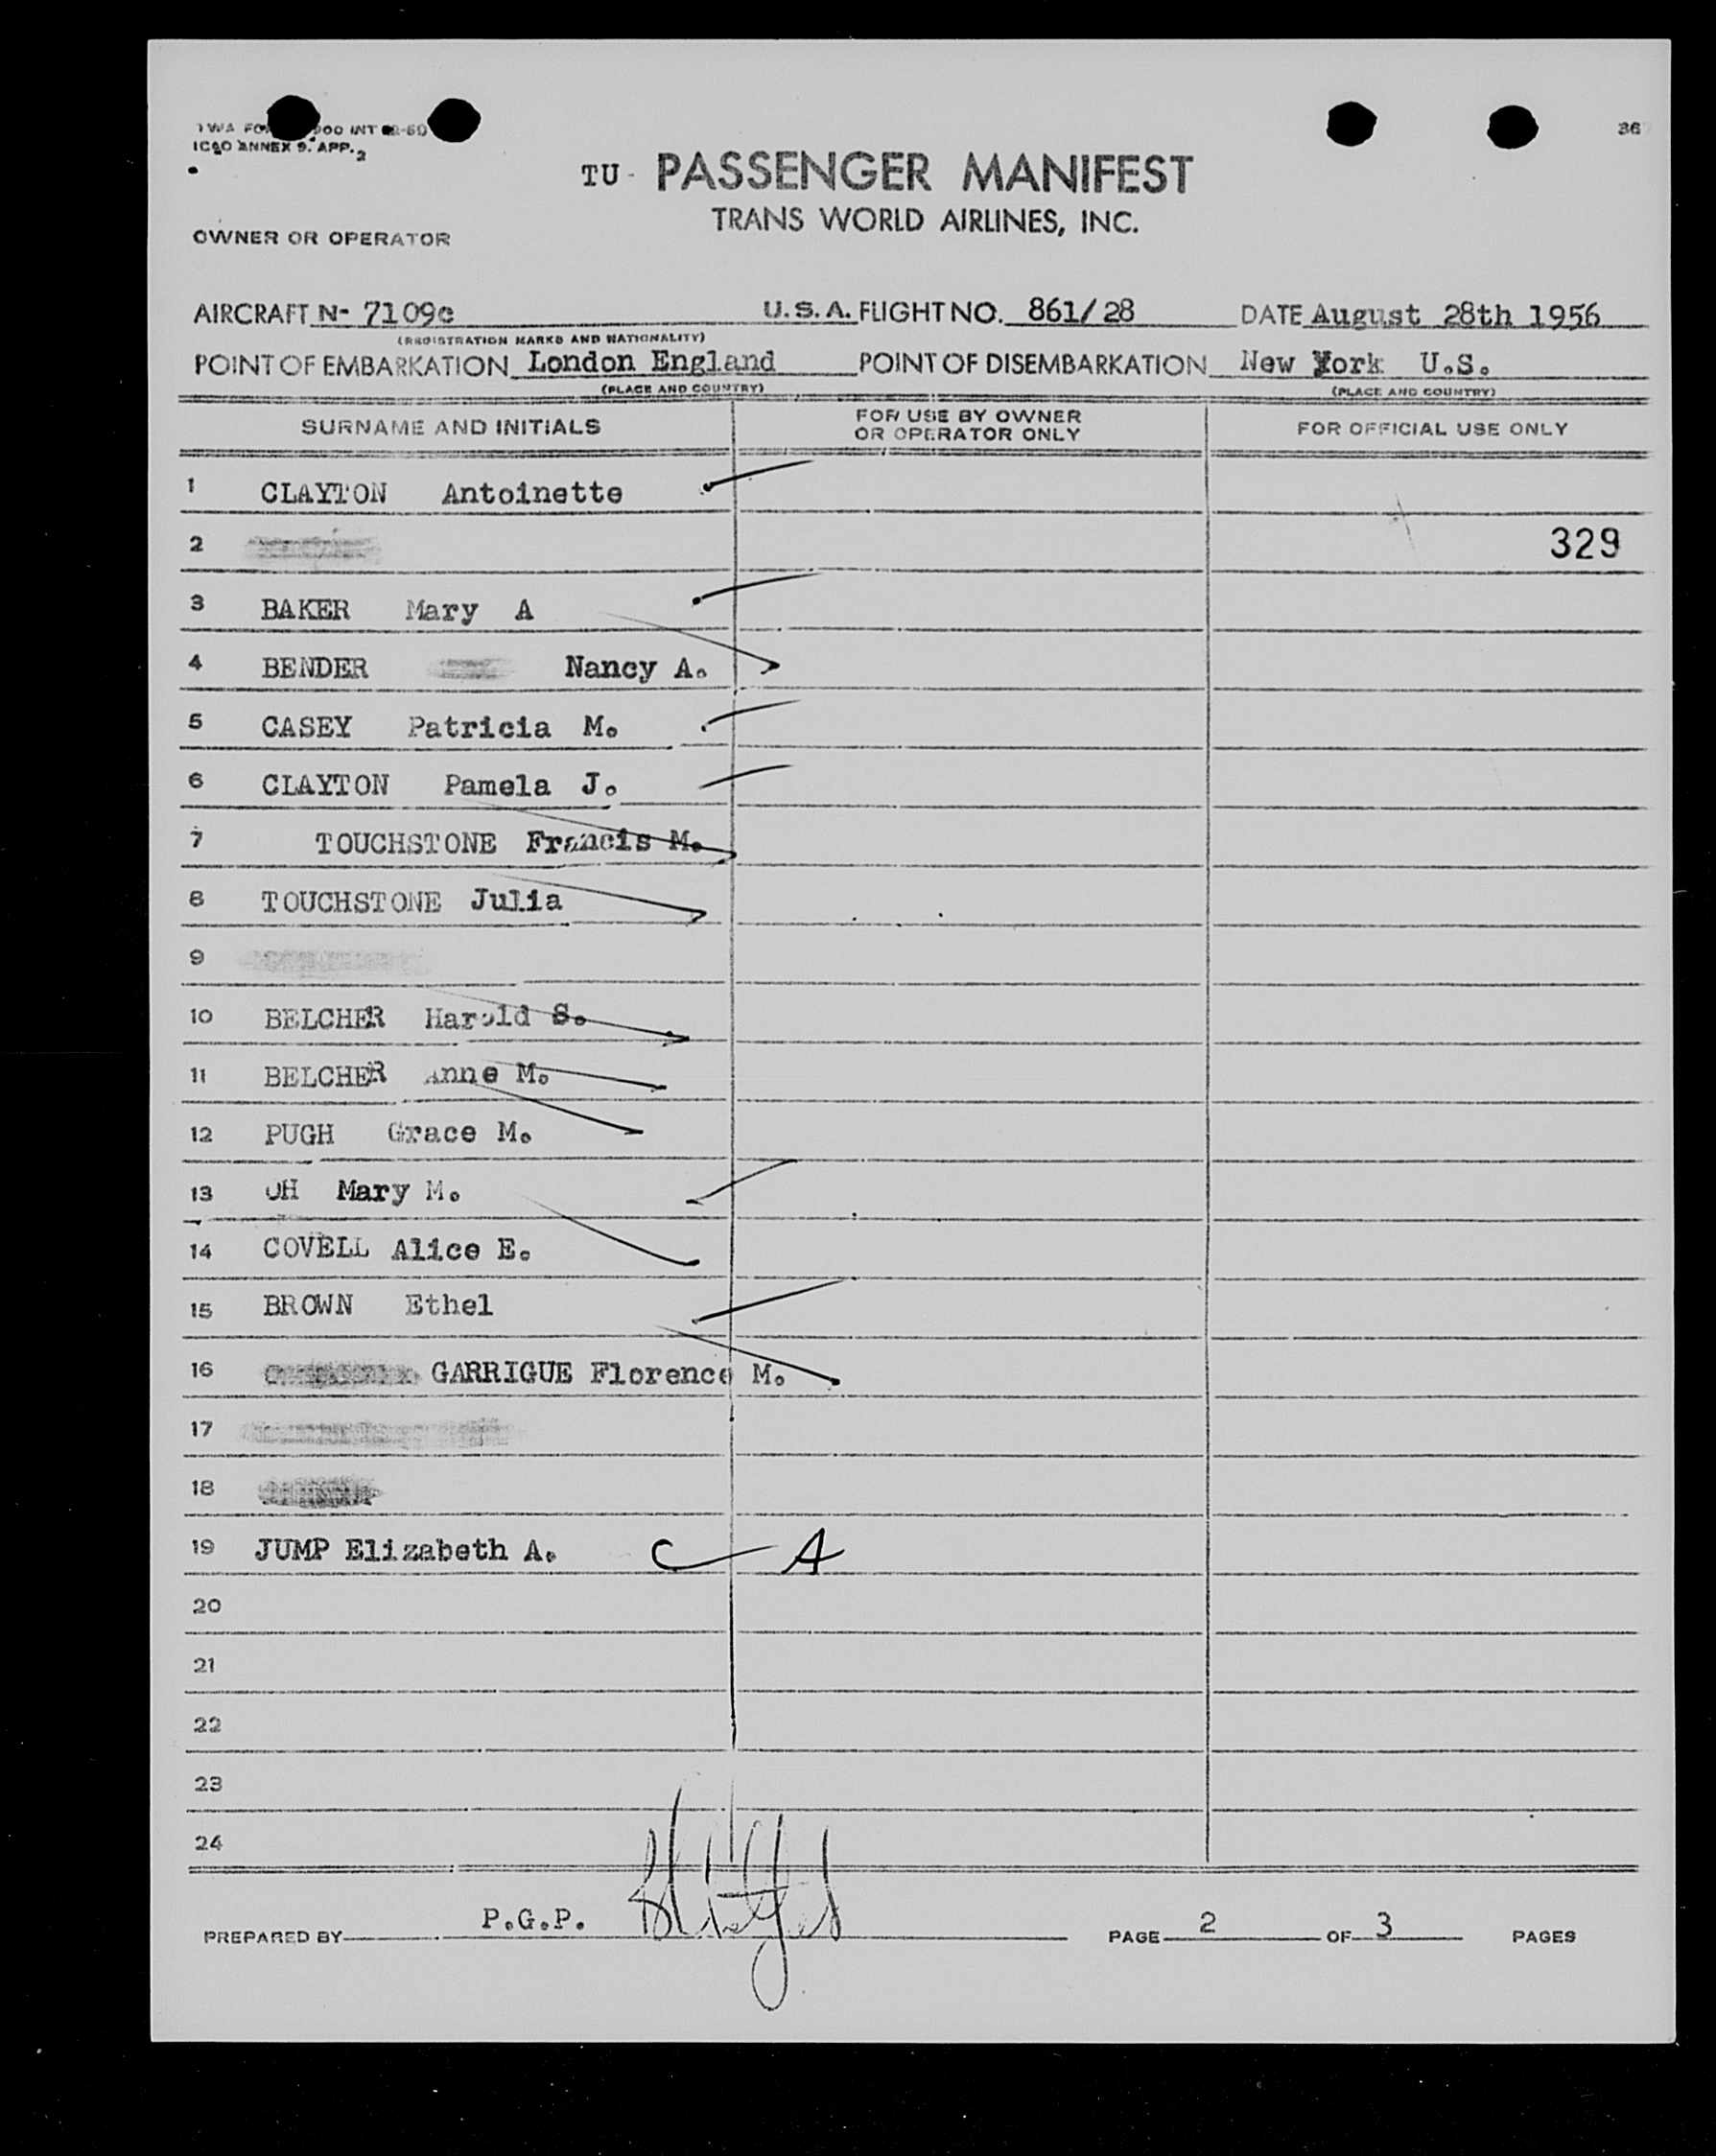 36
ICAO ANNEX 9. APP. 2
TU - PASSENGER MANIFEST
TRANS WORLD AIRLINES, INC.
OWNER OR OPERATOR
AIRCRAFT N- 7109c U.S.A. FLIGHT NO. 861/28 DATE August 28th 1956
(REGISTRATION MARKS AND NATIONALITY)
POINT OF EMBARKATION London England POINT OF DISEMBARKATION New York U.S.
(PLACE AND COUNTRY) (PLACE AND COUNTRY)
SURNAME AND INITIALS FOR USE BY OWNER OR OPERATOR ONLY FOR OFFICIAL USE ONLY
1 CLAYTON Antoinette
2 329
3 BAKER Mary A
4 BENDER Nancy A.
5 CASEY Patricia M.
6 CLAYTON Pamela J.
7 TOUCHSTONE Francis M.
8 TOUCHSTONE Julia
9
10 BELCHER Harold S.
11 BELCHER Anne M.
12 PUGH Grace M.
13 OH Mary M.
14 COVELL Alice E.
15 BROWN Ethel
16 GARRIGUE Florence M.
17
18
19 JUMP Elizabeth A. C A
20
21
22
23
24
PREPARED BY P.G.P. PAGE 2 OF 3 PAGES